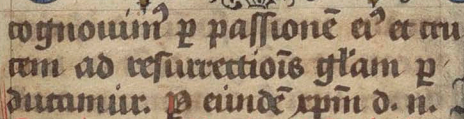 cognouim⁹ ꝑ passionē ei⁹ et cru
cem ad resurrectiōis gl̄am ꝑ
ducamur. ꝑ eundē xp̄m d. n.